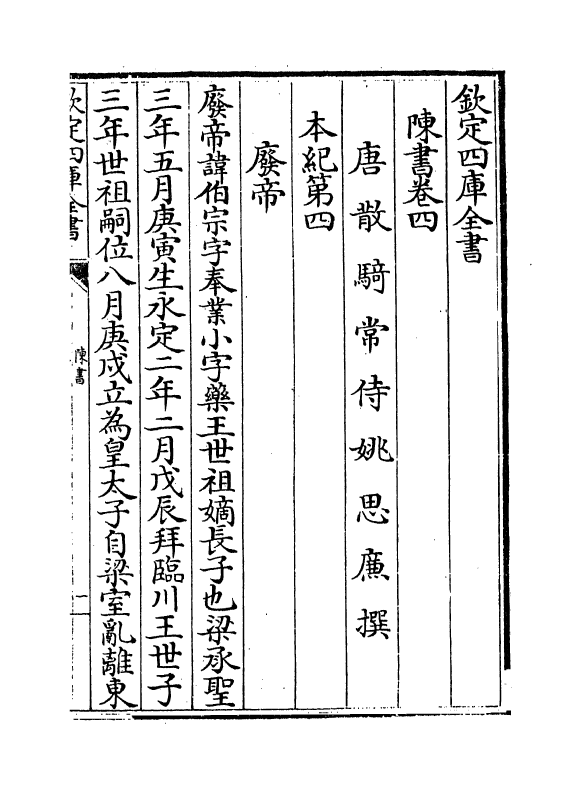 欽定四庫全書
陳書卷四
唐散騎常侍姚思廉撰
本紀第四
廢帝
廢帝諱伯宗字奉業小字藥王世祖嫡長子也梁承聖
三年五月庚寅生永定二年二月戊辰拜臨川王世子
三年世祖嗣位八月庚戌立為皇太子自梁室亂離東
欽定四庫全書
陳書
一